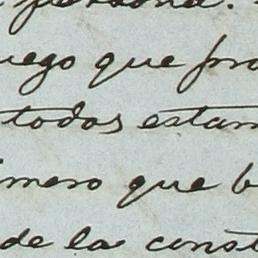 persona.
uego que pro
todos estam
imero que b
de la const